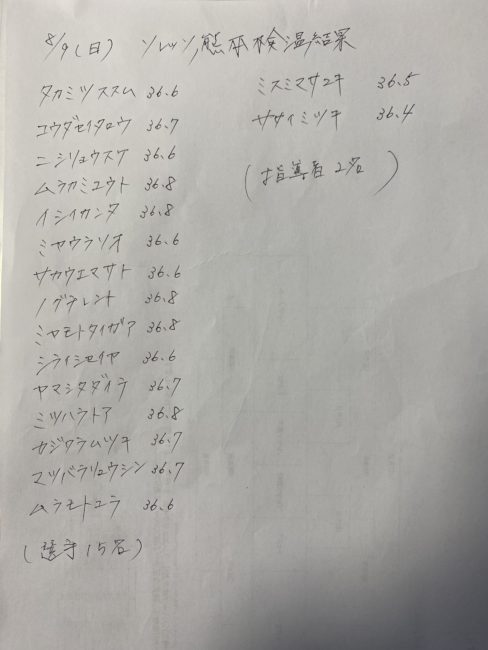 8/9(日) ソレッソ熊本検温結果
タカミツススム 36.6
コウダセイタロウ 36.7
ニシリョウスケ 36.6
ムラカミユウト 36.8
イシイカンタ 36.8
ミヤウラリオ 36.6
サカウエマサト 36.6
ノグチレント 36.8
ミヤモトタイガア 36.8
シライシセイヤ 36.6
ヤマシタダイチ 36.7
ミツハラトア 36.8
カジワラムツキ 36.7
マツバラリュウシン 36.7
ムラモトユラ 36.6
(選手15名)
ミスミマサユキ 36.5
ササイミツキ 36.4
(指導者2名)